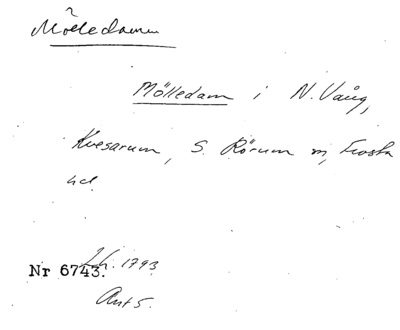 Mölledamm
Mölledam i N. Vång,
Kvesarum, S. Rörum sn, Frosta
hd
Nr 6743. Lh. 1793
Akt 5.